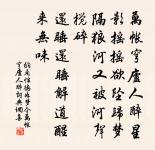 萬帳穹廬人醉星
影搖搖欲墜歸夢
隔狼河又被河聲
攪碎
還睡還睡解道醒
來無味
性德如夢令萬帳
穹廬人醉